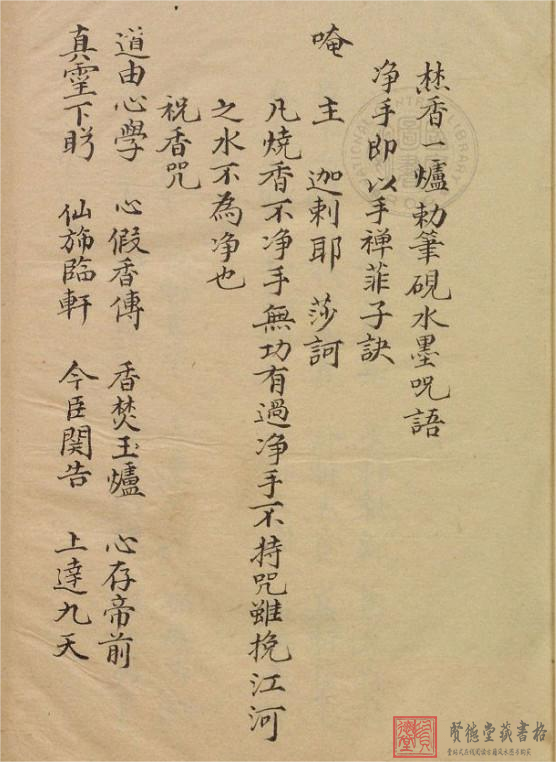 焚香一爐勅筆硯水墨咒語
净手即以手禅菲子訣
唵 主 迦剌耶 莎訶
凡燒香不净手無功有過净手不持咒雖挽江河
之水不為净也
祝香咒
道由心學 心假香傳 香焚玉爐 心存帝前
真霊下盻 仙斾臨軒 今臣関告 上達九天
NATIONAL CENTRAL LIBRARY
賢德堂荻書格